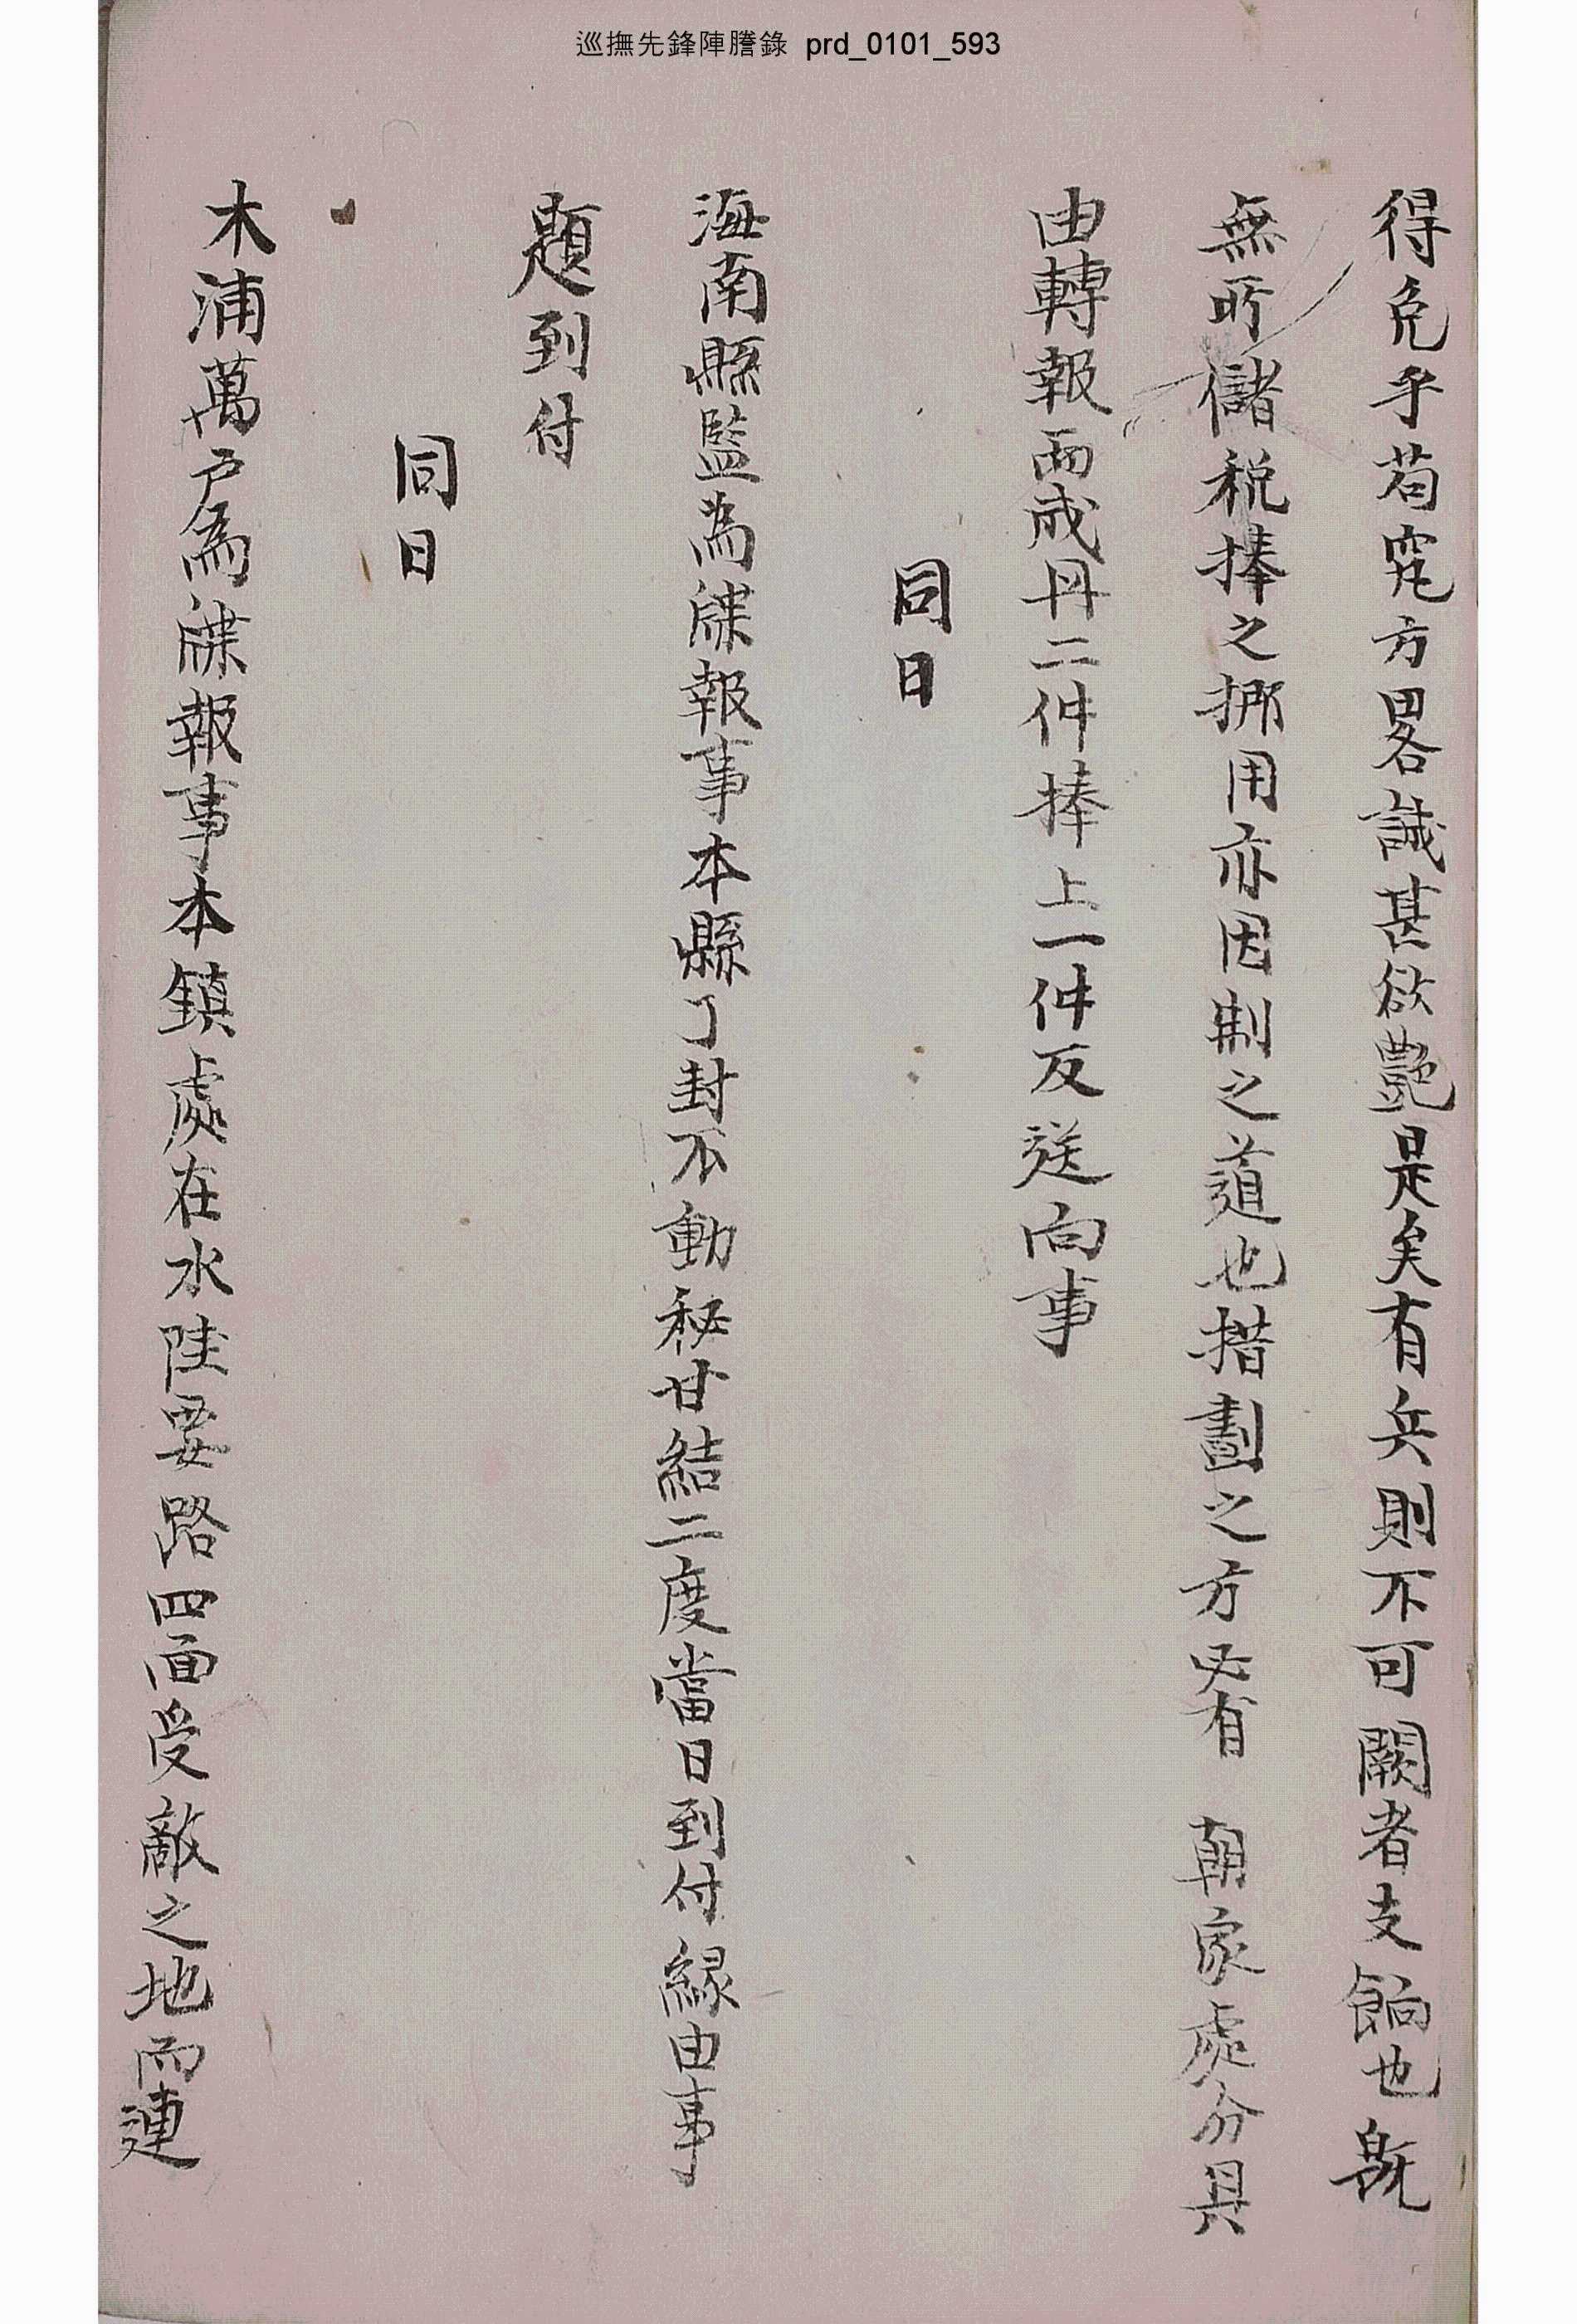 巡撫先鋒陣謄錄 prd_0101_593
得免乎若究方畧誠甚欲艷是矣有兵則不可闕者支餉也旣
無所儲稅捧之挪用亦因制之道也措劃之方必有 朝家處分具
由轉報而成丹二件捧上一件反送向事
同日
海南縣監爲牒報事本縣了封不動秘甘結二度當日到付緣由事
題到付
同日
木浦萬戶爲牒報事本鎭處在水陸要路四面受敵之地而連